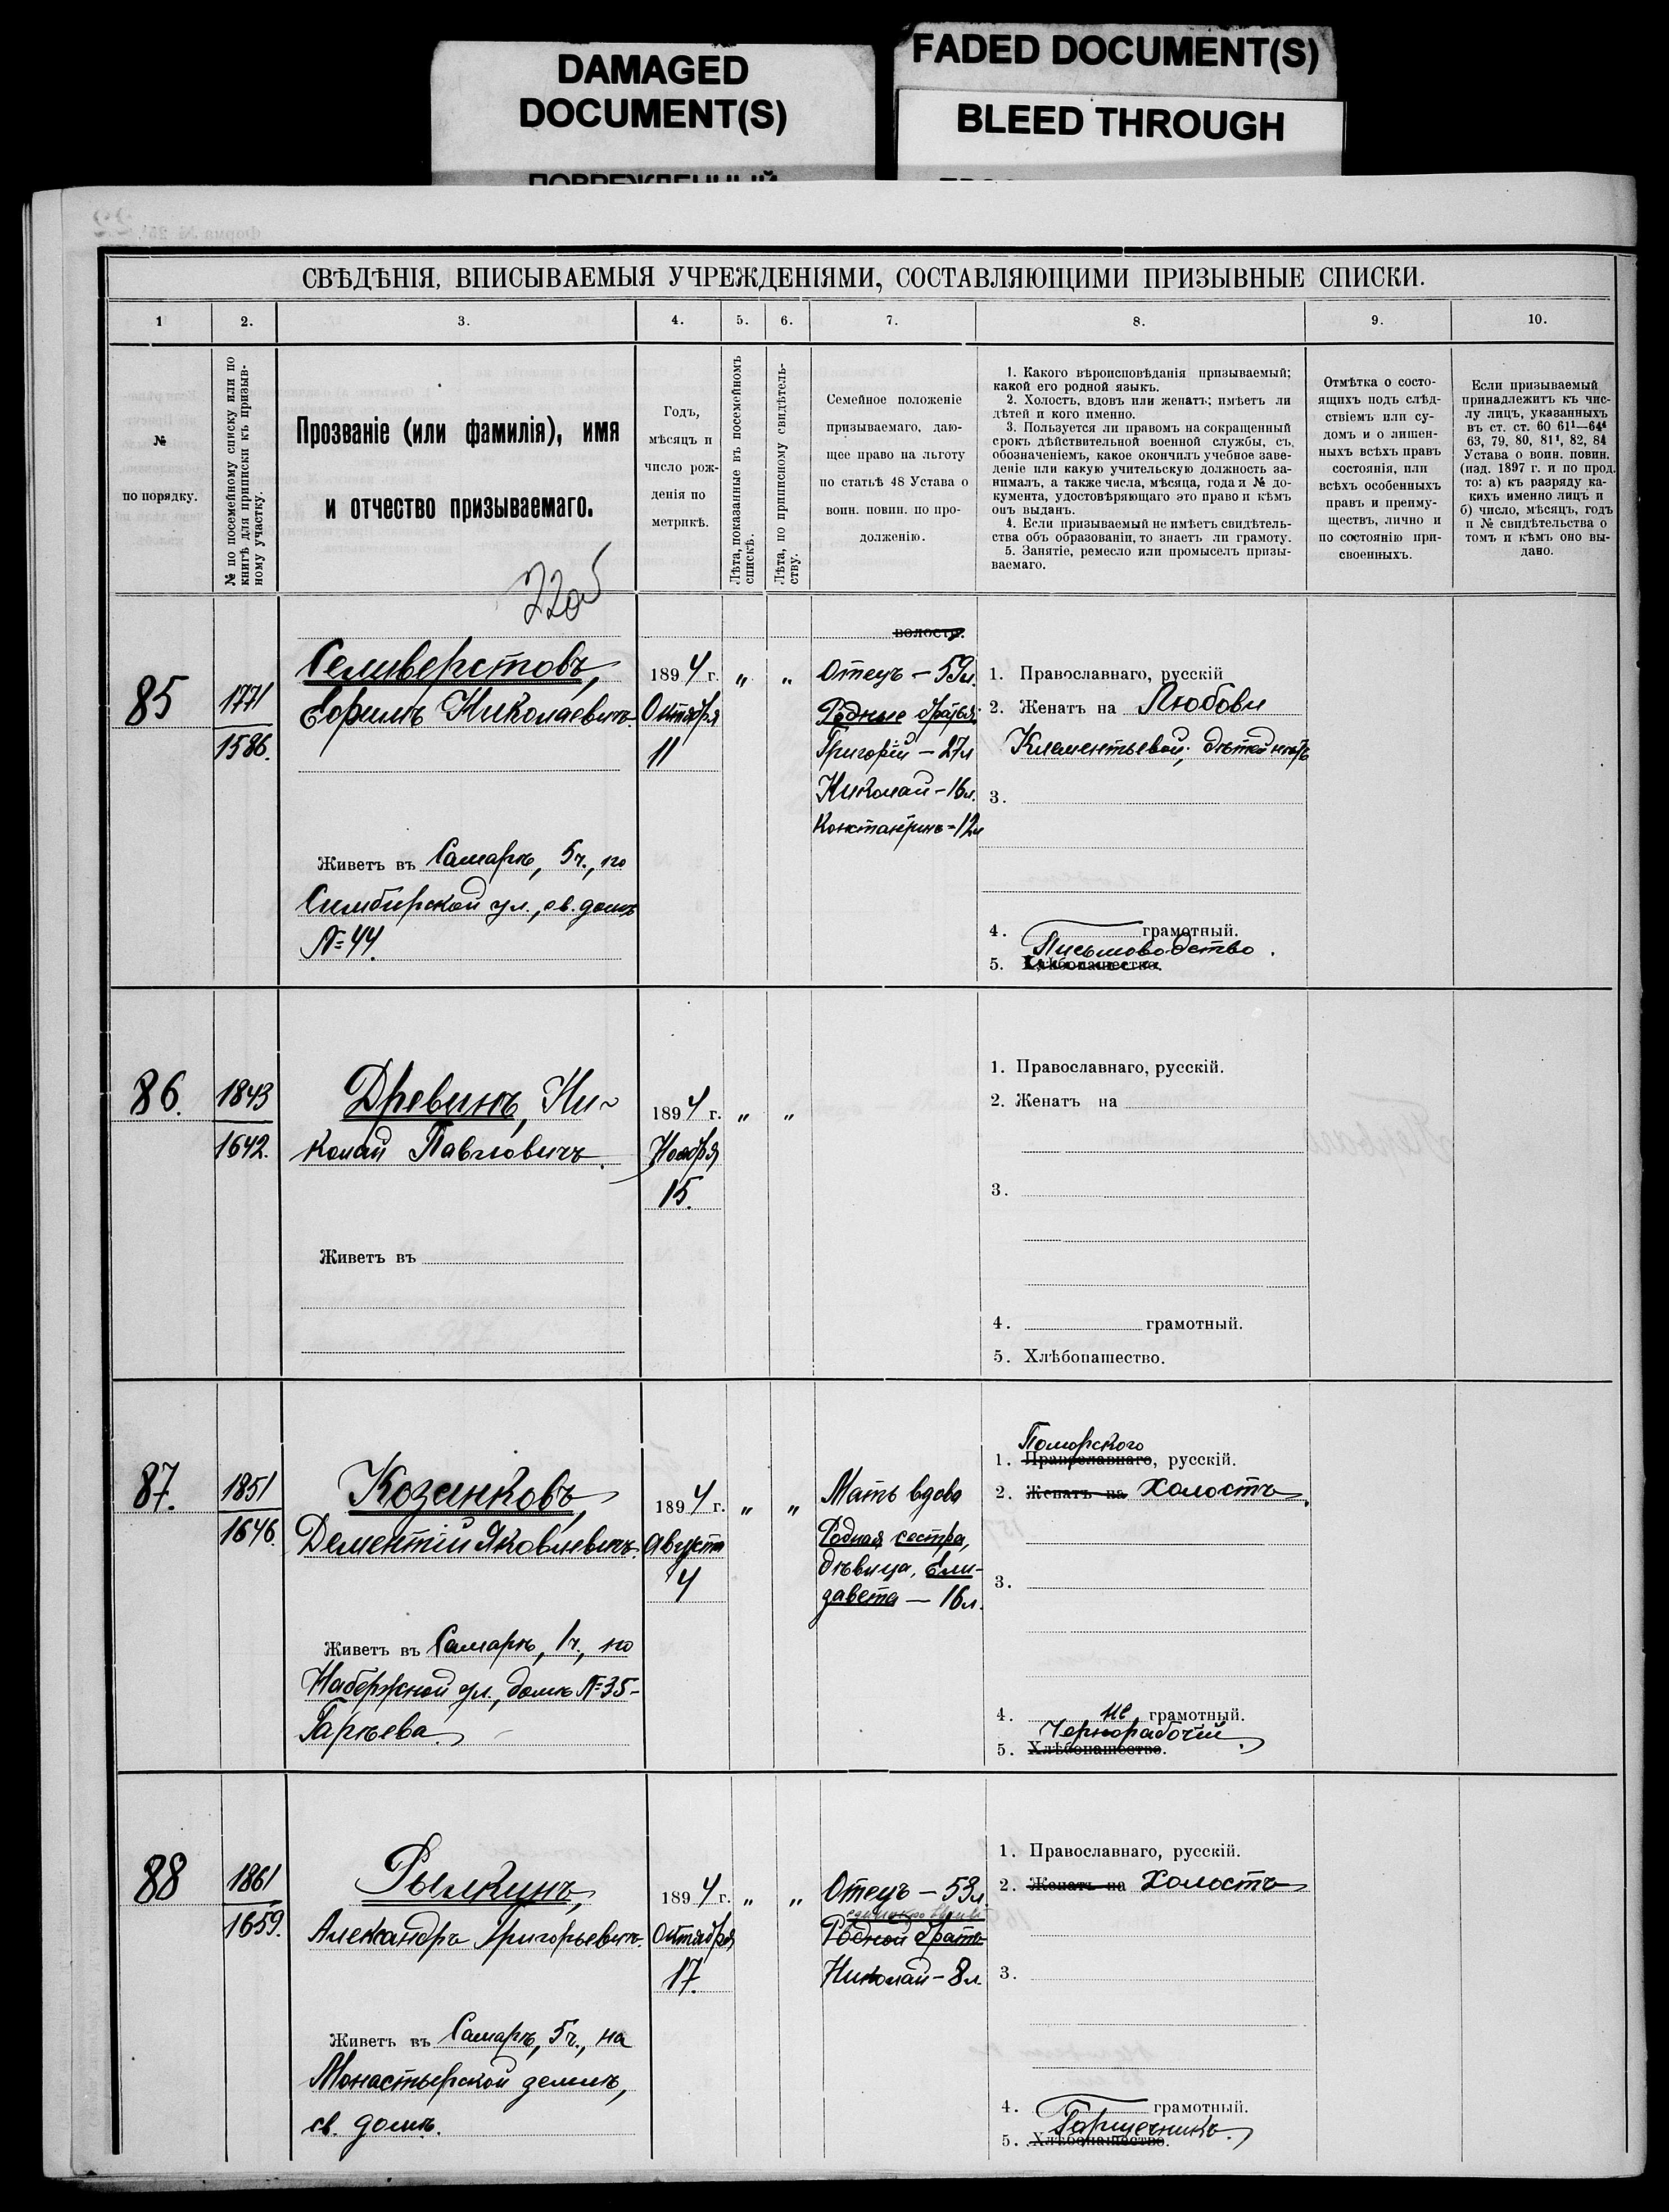 DAMAGED
DOCUMENT(S)
FADED DOCUMENT(S)
BLEED THROUGH
СВѢДѢНІЯ, ВПИСЫВАЕМЫЯ УЧРЕЖДЕНІЯМИ, СОСТАВЛЯЮЩИМИ ПРИЗЫВНЫЕ СПИСКИ.
1
2.
3.
4.
5.
6.
7.
8.
9.
10.
№
по порядку.
№ по посемейному списку или по
книгѣ для приписки къ призыв-
ному участку.
Прозваніе (или фамилія), имя
и отчество призываемаго.
Годъ,
мѣсяцъ и
число рож-
денія по
метрикѣ.
Лѣта, показанные въ посемейномъ
спискѣ.
Лѣта, по приписному свидѣтель-
ству.
Семейное положеніе
призываемаго, даю-
щее право на льготу
по статьѣ 48 Устава о
воин. повин. по про-
долженію.
1. Какого вѣроисповѣданія призываемый;
какой его родной языкъ.
2. Холостъ, вдовъ или женатъ; имѣетъ ли
дѣтей и кого именно.
3. Пользуется ли правомъ на сокращенный
срокъ дѣйствительной военной службы, съ
обозначеніемъ, какое окончилъ учебное заве-
деніе или какую учительскую должность за-
нималъ, а также числа, мѣсяца, года и № до-
кумента, удостовѣряющаго это право и кѣмъ
онъ выданъ.
4. Если призываемый не имѣетъ свидѣтель-
ства объ образованіи, то знаетъ ли грамоту.
5. Занятіе, ремесло или промыселъ призы-
ваемаго.
Отмѣтка о состо-
ящихъ подъ слѣд-
ствіемъ или су-
домъ и о лишен-
ныхъ всѣхъ правъ
состоянія, или
всѣхъ особенныхъ
правъ и преиму-
ществъ, лично и
по состоянію при-
своенныхъ.
Если призываемый
принадлежитъ къ чис-
лу лицъ, указанныхъ
въ ст. ст. 60 61¹—64⁴
63, 79, 80, 81¹, 82, 84
Устава о воин. повин.
(изд. 1897 г. и по прод.
то: а) къ разряду ка-
кихъ именно лицъ и
б) число, мѣсяцъ, годъ
и № свидѣтельства о
томъ и кѣмъ оно вы-
дано.
22об
волости.
85
1771
1586.
Селиверстовъ,
Ефимъ Николаевичъ.
Живетъ въ Самарѣ, 5ч., по
Симбирской ул., св. домъ
№ 44.
1894 г.
Октября
11
„
„
Отецъ – 59л.
Родные братья:
Григорій – 27л
Николай – 16л.
Константинъ – 12л
1. Православнаго, русскій
2. Женатъ на Любови
Клементьевой; дѣтей нѣтъ
3.
4. грамотный.
Письмоводство.
5. Хлѣбопашество.
86.
1843
1642.
Древинъ, Ни-
колай Павловичъ.
Живетъ въ
1894 г.
Ноября
15.
„
„
1. Православнаго, русскій.
2. Женатъ на
3.
4. грамотный.
5. Хлѣбопашество.
87.
1851
1646.
Козенковъ,
Дементій Яковлевичъ.
Живетъ въ Самарѣ, 1ч., по
Набержной ул., домъ № 35-
Гарѣева.
1894 г.
Августа
4
„
„
Мать вдова
Родная сестра,
дѣвица, Ели-
завета — 16л.
Поморского
1. Православнаго, русскій.
2. Женатъ на Холостъ.
3.
4. не грамотный.
Чернорабочій.
5. Хлѣбопашество.
88
1861
1659.
Рылкинъ,
Александръ Григорьевичъ.
Живетъ въ Самарѣ, 5ч., на
Монастырской землѣ,
св. домъ.
1894 г.
Октября
17.
„
„
Отецъ – 53л
Родной братъ
Николай – 8л.
1. Православнаго, русскій.
2. Женатъ на Холостъ
3.
4. грамотный.
Горшечникъ.
5. Хлѣбопашество.